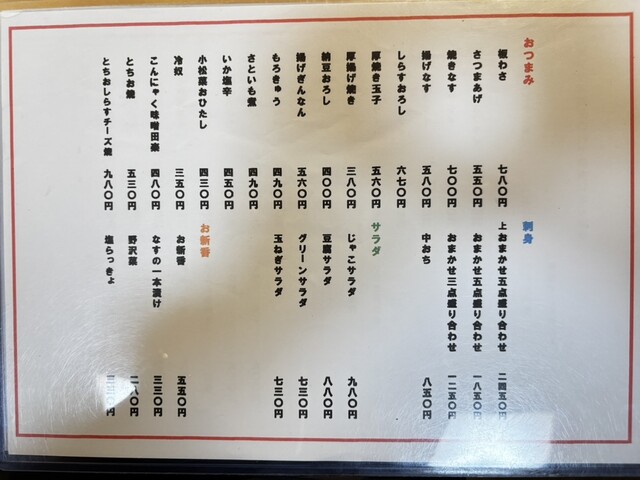 おつまみ
板わさ 七八〇円
さつまあげ 五五〇円
焼きなす 七〇〇円
揚げなす 五八〇円
しらすおろし 六七〇円
厚焼き玉子 五六〇円
厚揚げ焼き 三八〇円
納豆おろし 四〇〇円
揚げぎんなん 五六〇円
もろきゅう 四九〇円
さといも煮 四九〇円
いか塩辛 四五〇円
小松菜おひたし 四三〇円
冷奴 三五〇円
こんにゃく味噌田楽 四八〇円
とちお焼 五三〇円
とちおしらすチーズ焼 九八〇円
刺身
上おまかせ五点盛り合わせ 二四五〇円
おまかせ五点盛り合わせ 一八五〇円
おまかせ三点盛り合わせ 一二五〇円
中おち 八五〇円
サラダ
じゃこサラダ 九八〇円
豆腐サラダ 八八〇円
グリーンサラダ 七三〇円
玉ねぎサラダ 七三〇円
お新香
お新香 五五〇円
なすの一本漬け 三三〇円
野沢菜 二八〇円
塩らっきょ